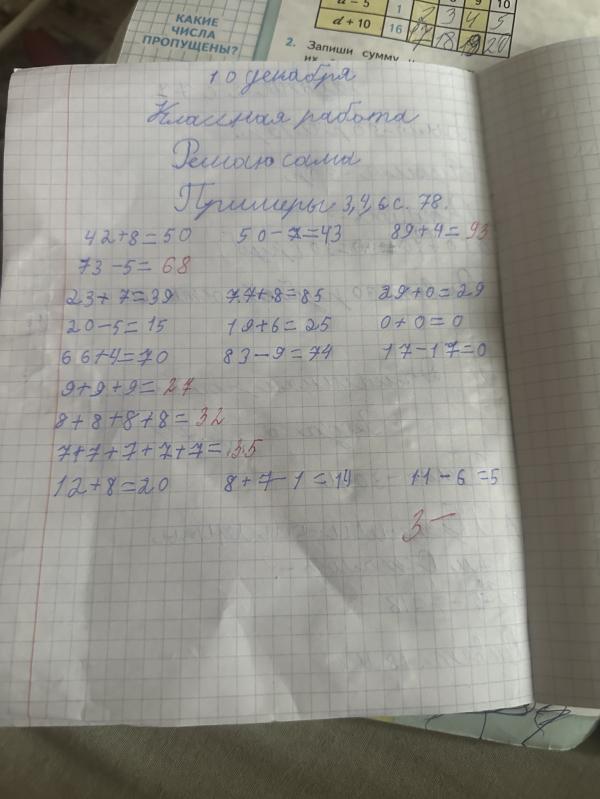 КАКИЕ
ЧИСЛА
ПРОПУЩЕНЫ?
d - 5 1 2 3 4 5
d + 10 16 17 18 19 20
2. Запиши сумму
их
10 декабря
Классная работа
Решаю сама
Примеры 3,4,6 с. 78.
42+8=50 50-7=43 89+4=93
73-5=68
23+7=39 77+8=85 29+0=29
20-5=15 19+6=25 0+0=0
66+4=70 83-9=74 17-17=0
9+9+9=27
8+8+8+8=32
7+7+7+7+7=35
12+8=20 8+7-1=14 11-6=5
3-